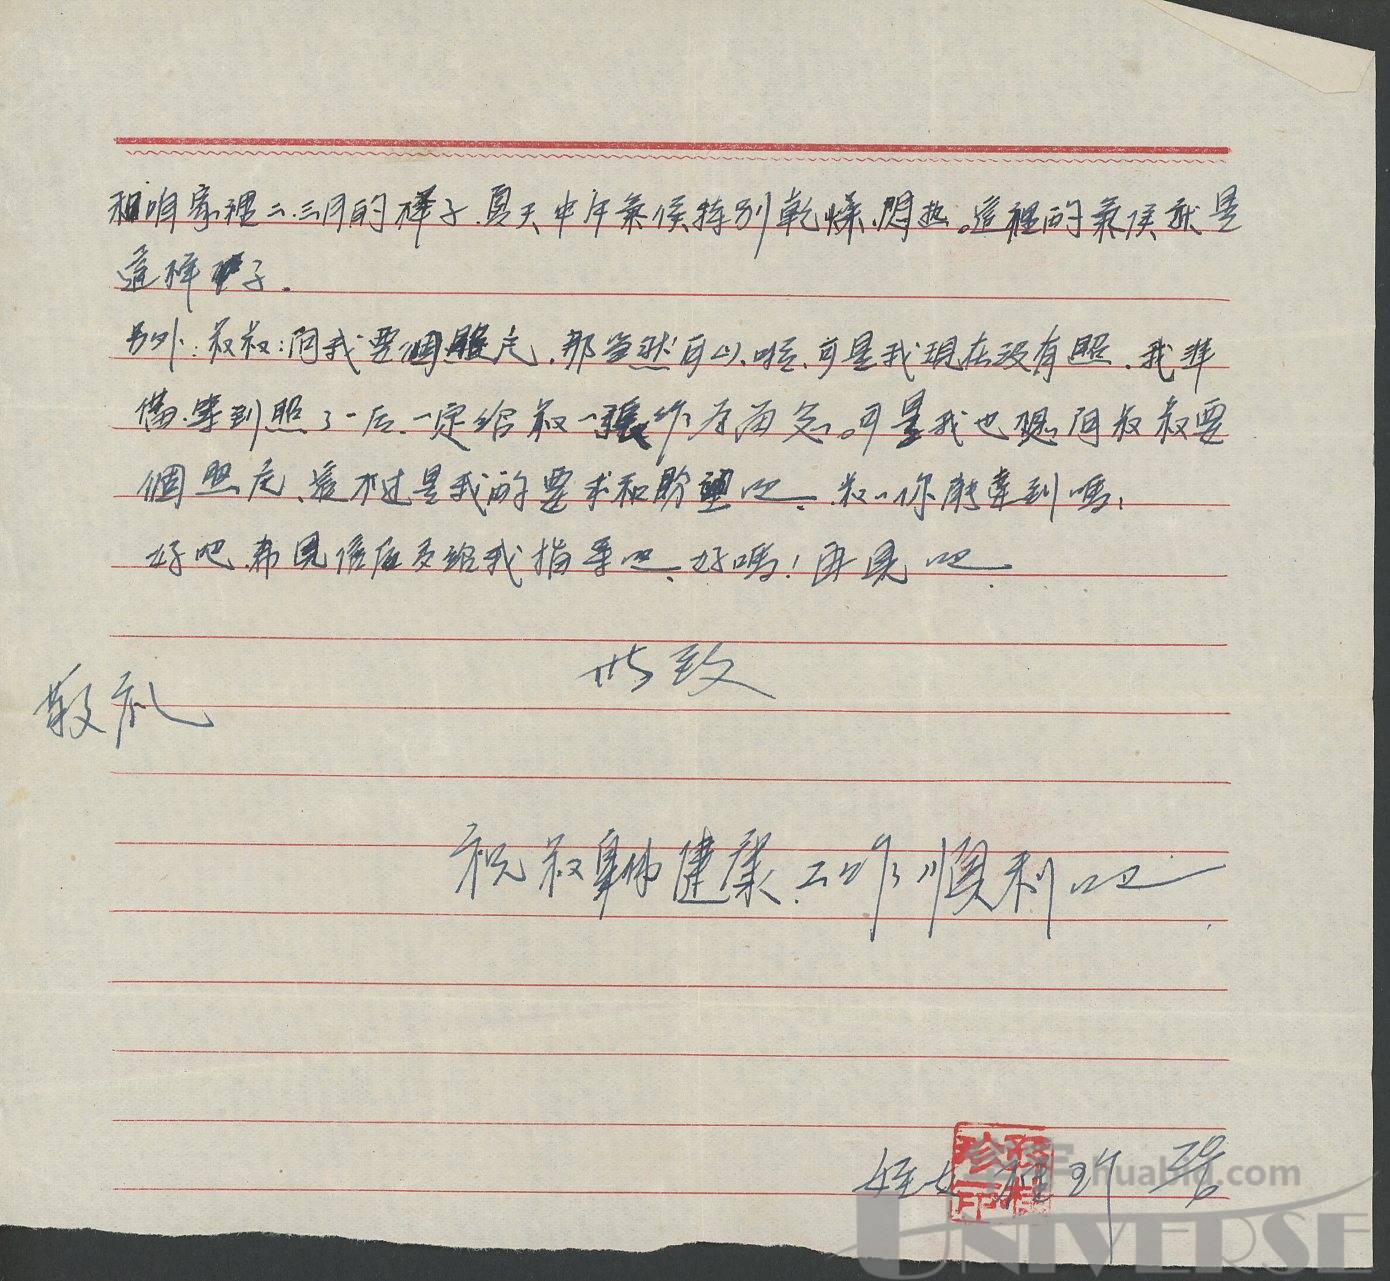 和咱家裡二、三月的樣子.夏天中午氣候特別乾燥、悶热。這裡的氣侯就是
這样子.
另外:叔叔:向我要個照片、那当然可以啦、可是我現在沒有照、我準
備、等到照了一后、一定给叔一張作为留念。可是我也想向叔叔要
個照片、這不过是我的要求和盼望吧、叔叔你能達到嗎、
好吧、希見信后多给我指導吧、好嗎!再見吧
此致
敬礼
祝叔身体健康、工作順利吧
侄女 桂珍
珍 桂 印
huabid.com
UNIVERSE